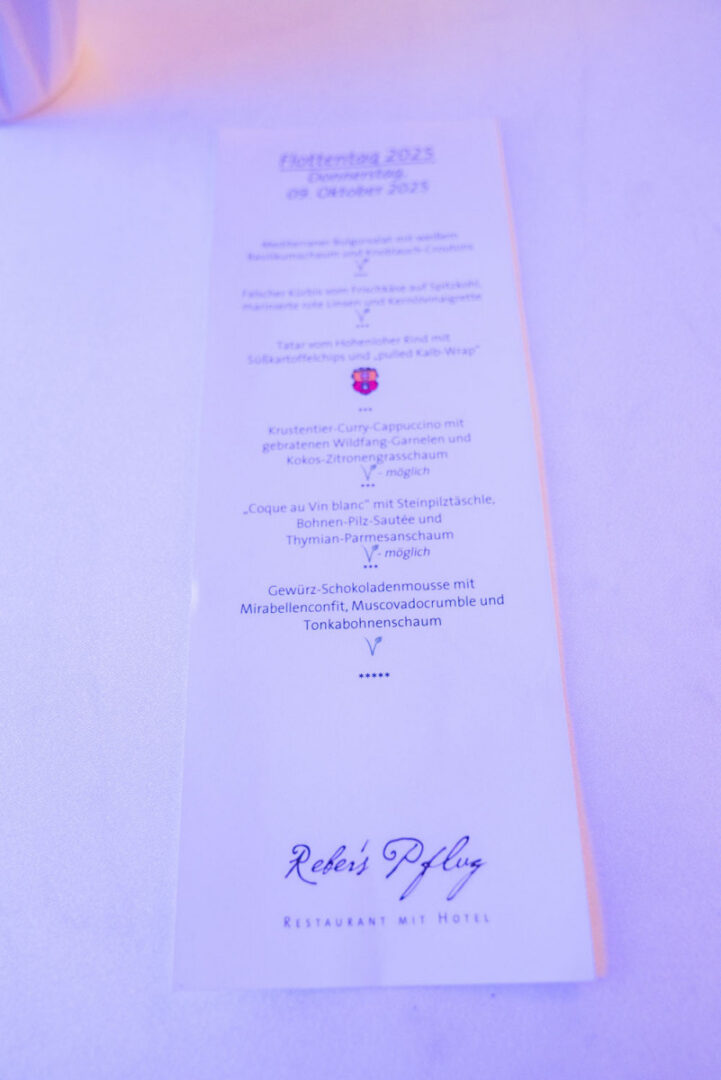 Flottentag 2025
Donnerstag,
09. Oktober 2025
Mediterraner Bulgursalat mit weißem
Basilikumschaum und Knoblauch-Croutons
Falscher Kürbis vom Frischkäse auf Spitzkohl,
marinierte rote Linsen und Kernölvinaigrette
***
Tatar vom Hohenloher Rind mit
Süßkartoffelchips und „pulled Kalb-Wrap“
***
Krustentier-Curry-Cappuccino mit
gebratenen Wildfang-Garnelen und
Kokos-Zitronengrasschaum
- möglich
***
„Coque au Vin blanc“ mit Steinpilztäschle,
Bohnen-Pilz-Sautée und
Thymian-Parmesanschaum
- möglich
***
Gewürz-Schokoladenmousse mit
Mirabellenconfit, Muscovadocrumble und
Tonkabohnenschaum
*****
Reber's Pflug
RESTAURANT MIT HOTEL